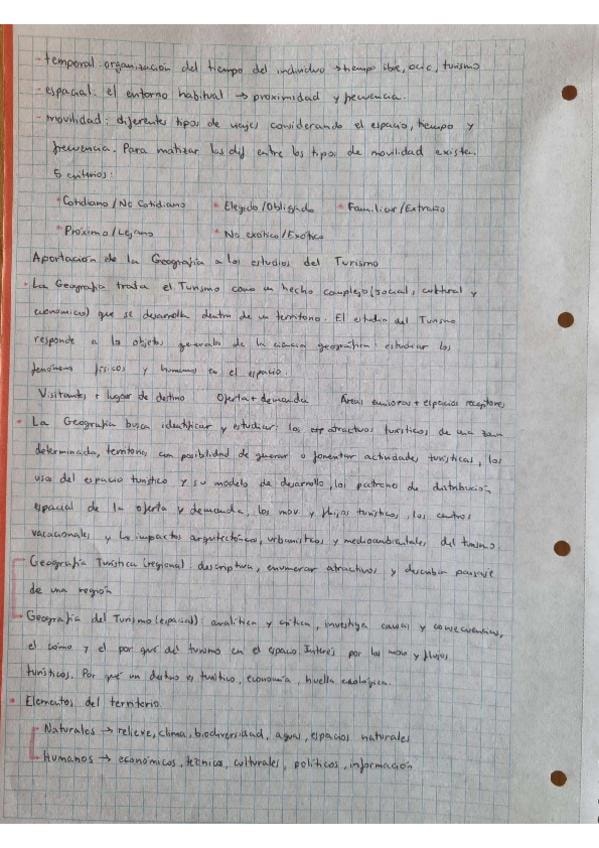 - temporal: organización del tiempo del individuo → tiempo libre, ocio, turismo
- espacial: el entorno habitual → proximidad y frecuencia.
- movilidad: diferentes tipos de viajes considerando el espacio, tiempo y
frecuencia. Para matizar las dif entre los tipos de movilidad existen
5 criterios:
* Cotidiano / No Cotidiano * Elegido / Obligado * Familiar / Extraño
* Próximo / Lejano * No exótico / Exótico
Aportación de la Geografía a los estudios del Turismo
• La Geografía trata el Turismo como un hecho complejo (social, cultural y
económico) que se desarrolla dentro de un territorio. El estudio del Turismo
responde a los objetos generales de la ciencia geográfica: estudiar los
fenómenos físicos y humanos en el espacio.
Visitantes + lugar de destino Oferta + demanda Áreas emisoras + espacios receptores
• La Geografía busca identificar y estudiar: los atractivos turísticos de una zona
determinada, territorios con posibilidad de generar o fomentar actividades turísticas, los
usos del espacio turístico y su modelo de desarrollo, los patrones de distribución
espacial de la oferta y demanda, los mov y flujos turísticos, los centros
vacacionales y los impactos arquitectónicos, urbanísticos y medioambientales del turismo.
Geografía Turística (regional): descriptiva, enumerar atractivos y describir paisaje
de una región
Geografía del Turismo (espacial): analítica y crítica, investiga causas y consecuencias,
el cómo y el por qué del turismo en el espacio. Interés por los mov y flujos
turísticos. Por qué un destino es turístico, economía, huella ecológica.
• Elementos del territorio.
Naturales → relieve, clima, biodiversidad, agua, espacios naturales
Humanos → económicos, técnicos, culturales, políticos, información